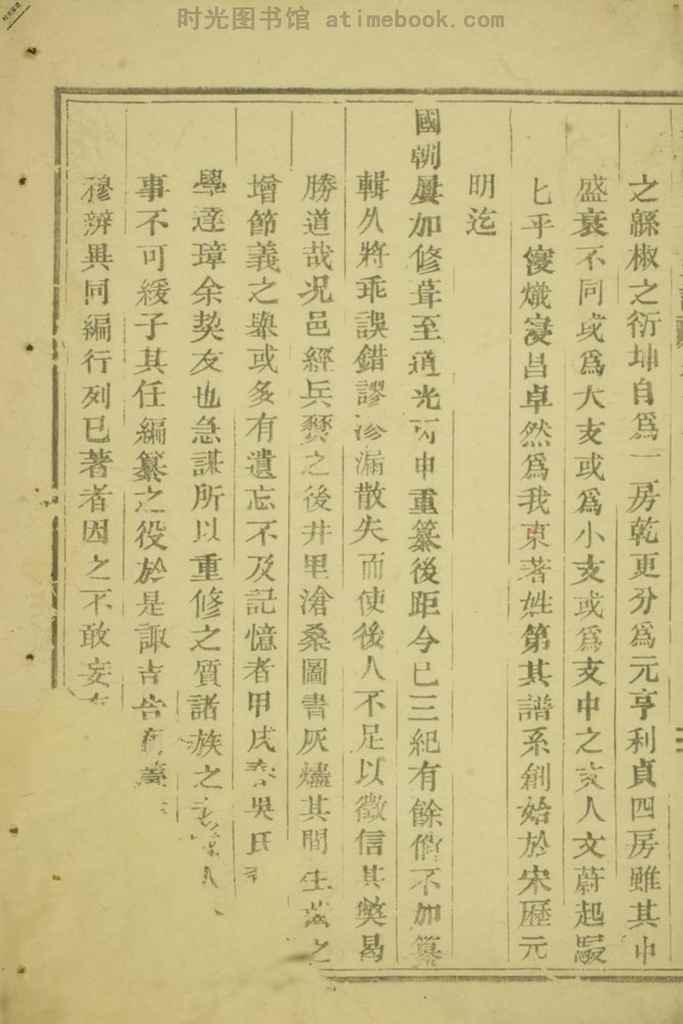 时光图书馆 atimebook.com
之緜椒之衍坤自爲一房乾更分爲元亨利貞四房雖其中
盛衰不同或爲大支或爲小支或爲支中之支人文蔚起駸
七乎寖熾寖昌卓然爲我東著姓第其譜系創始於宋歷元
明迄
國朝屢加修葺至道光丙申重纂後距今已三紀有餘儻不加纂
輯久將乖誤錯謬滲漏散失而使後人不足以徵信其獘曷
勝道哉况邑經兵燹之後井里滄桑圖書灰燼其間生歿之
增節義之舉或多有遺忘不及記憶者甲戌春吳氏
學達璋余契友也急謀所以重修之質諸族之
事不可緩子其任編纂之役於是諏吉告
穆辨異同編行列已著者因之不敢妄